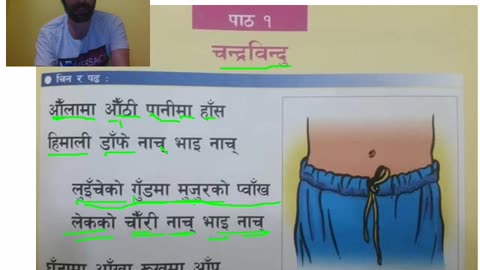 पाठ १
चन्द्रविन्दु
चिन र पढ :
औँलामा औँठी पानीमा हाँस
हिमाली डाँफे नाच् भाइ नाच्
लुइँचेको गुँडमा मुजुरको प्वाँख
लेकको चौँरी नाच् भाइ नाच्